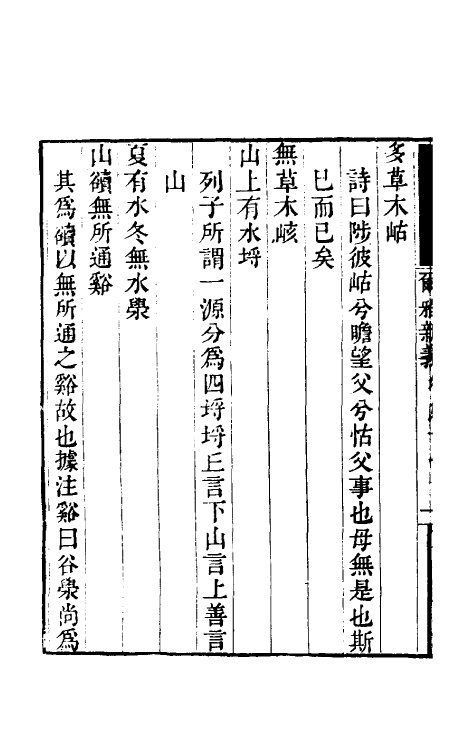 爾雅新義
多草木岵
詩曰陟彼岵兮瞻望父兮怙父事也母無是也斯
已而已矣
無草木峐
山上有水埒
列子所謂一源分為四埒埒丘言下山言上善言
山
夏有水冬無水澩
山䜪無所通谿
其為䜪以無所通之谿故也據注谿曰谷澩尚為